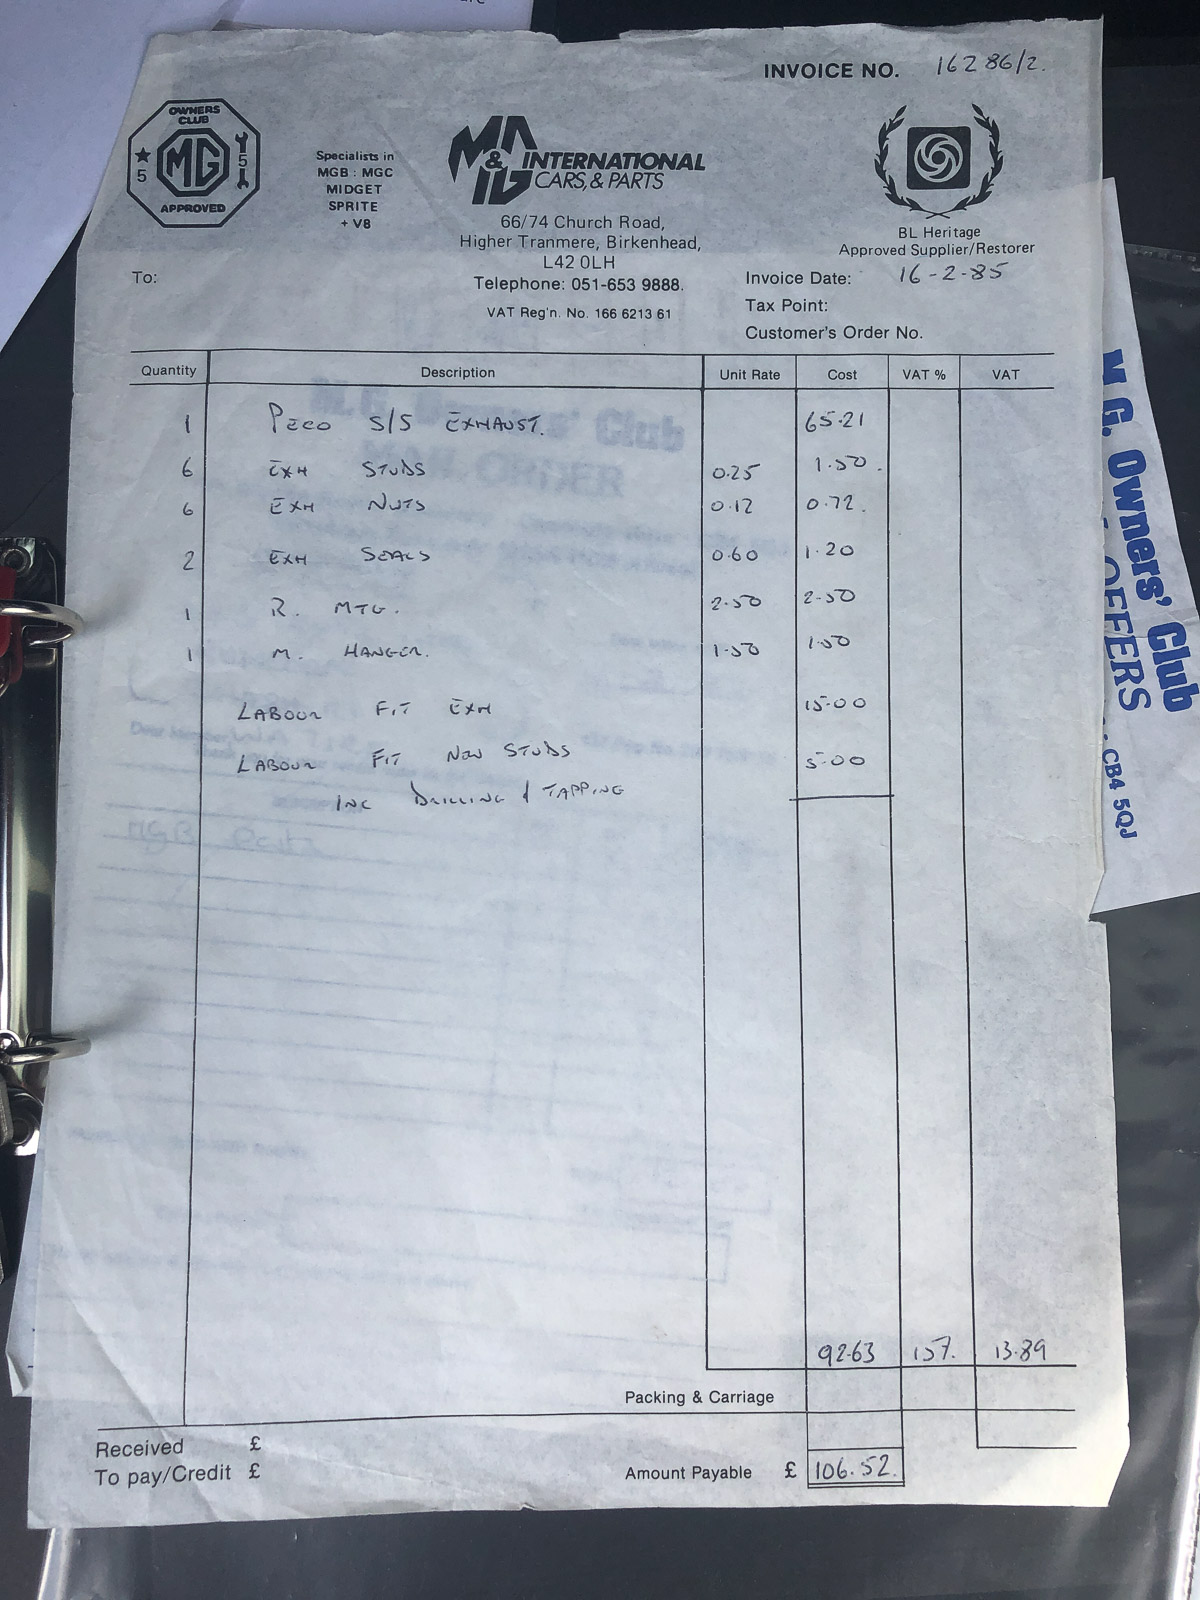 INVOICE NO. 16286/2.
OWNERS
CLUB
★ 5
MG
5
APPROVED
Specialists in
MGB : MGC
MIDGET
SPRITE
+ V8
INTERNATIONAL
CARS, & PARTS
66/74 Church Road,
Higher Tranmere, Birkenhead,
L42 0LH
Telephone: 051-653 9888.
VAT Reg'n. No. 166 6213 61
BL Heritage
Approved Supplier/Restorer
To:
Invoice Date: 16-2-85
Tax Point:
Customer's Order No.
Quantity Description Unit Rate Cost VAT % VAT
1 PECO S/S EXHAUST. 65.21
6 EXH STUDS 0.25 1.50.
6 EXH NUTS 0.12 0.72.
2 EXH SEALS 0.60 1.20
1 R. MTG. 2.50 2.50
1 M. HANGER. 1.50 1.50
LABOUR FIT EXH 15.00
LABOUR FIT NEW STUDS 5.00
INC DRILLING & TAPPING
92.63 15%. 13.89
Packing & Carriage
Received £
To pay/Credit £
Amount Payable £ 106.52.
M.G. Owners' Club
OFFERS
CB4 5QJ